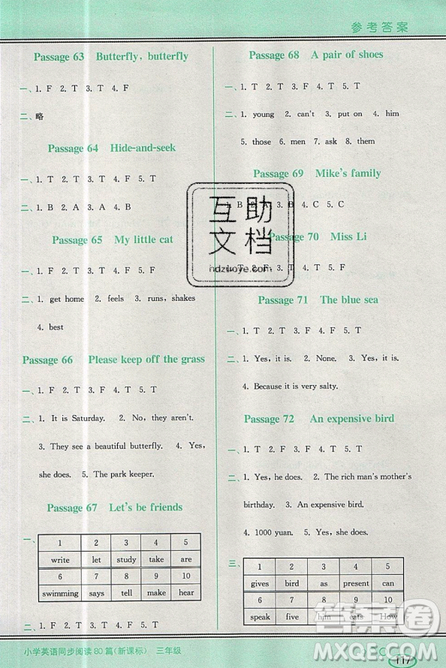 参考答案
Passage 63 Butterfly, butterfly
一、1. F 2. T 3. T 4. F
二、略
Passage 64 Hide-and-seek
一、1. T 2. T 3. T 4. F 5. T
二、1. B 2. A 3. A 4. B 5. A
Passage 65 My little cat
一、1. F 2. T 3. F 4. T 5. T
二、1. get home 2. feels 3. runs, shakes
4. best
Passage 66 Please keep off the grass
一、1. T 2. F 3. F 4. T 5. T
二、1. It is Saturday. 2. No, they aren't.
3. They see a beautiful butterfly. 4. Yes,
she does. 5. The park keeper.
Passage 67 Let's be friends
一、
1 2 3 4 5
write let study take are
6 7 8 9 10
swimming says tell meet here
小学英语同步阅读80篇(新课标) 三年级
Passage 68 A pair of shoes
一、1. T 2. T 3. F 4. F 5. T
二、1. young 2. can't 3. put on 4. him
5. those 6. men 7. ask 8. them
Passage 69 Mike's family
1. B 2. 3. B 4. C 5. C
Passage 70 Miss Li
1. T 2. F 3. T 4. T 5. F
Passage 71 The blue sea
一、1. T 2. F 3. T 4. F
二、1. Yes, it is. 2. None. 3. Yes, it is.
4. Because it is very salty.
Passage 72 An expensive bird
一、1. T 2. F 3. F 4. T 5. T
二、1. Yes, he does. 2. The rich man's mother's
birthday. 3. An expensive bird.
4. 1000 yuan. 5. Yes, she does.
三、
1 2 3 4 5
gives bird as present can
6 7 8 9
sings it
117
互助
文档
hdzuoye.com